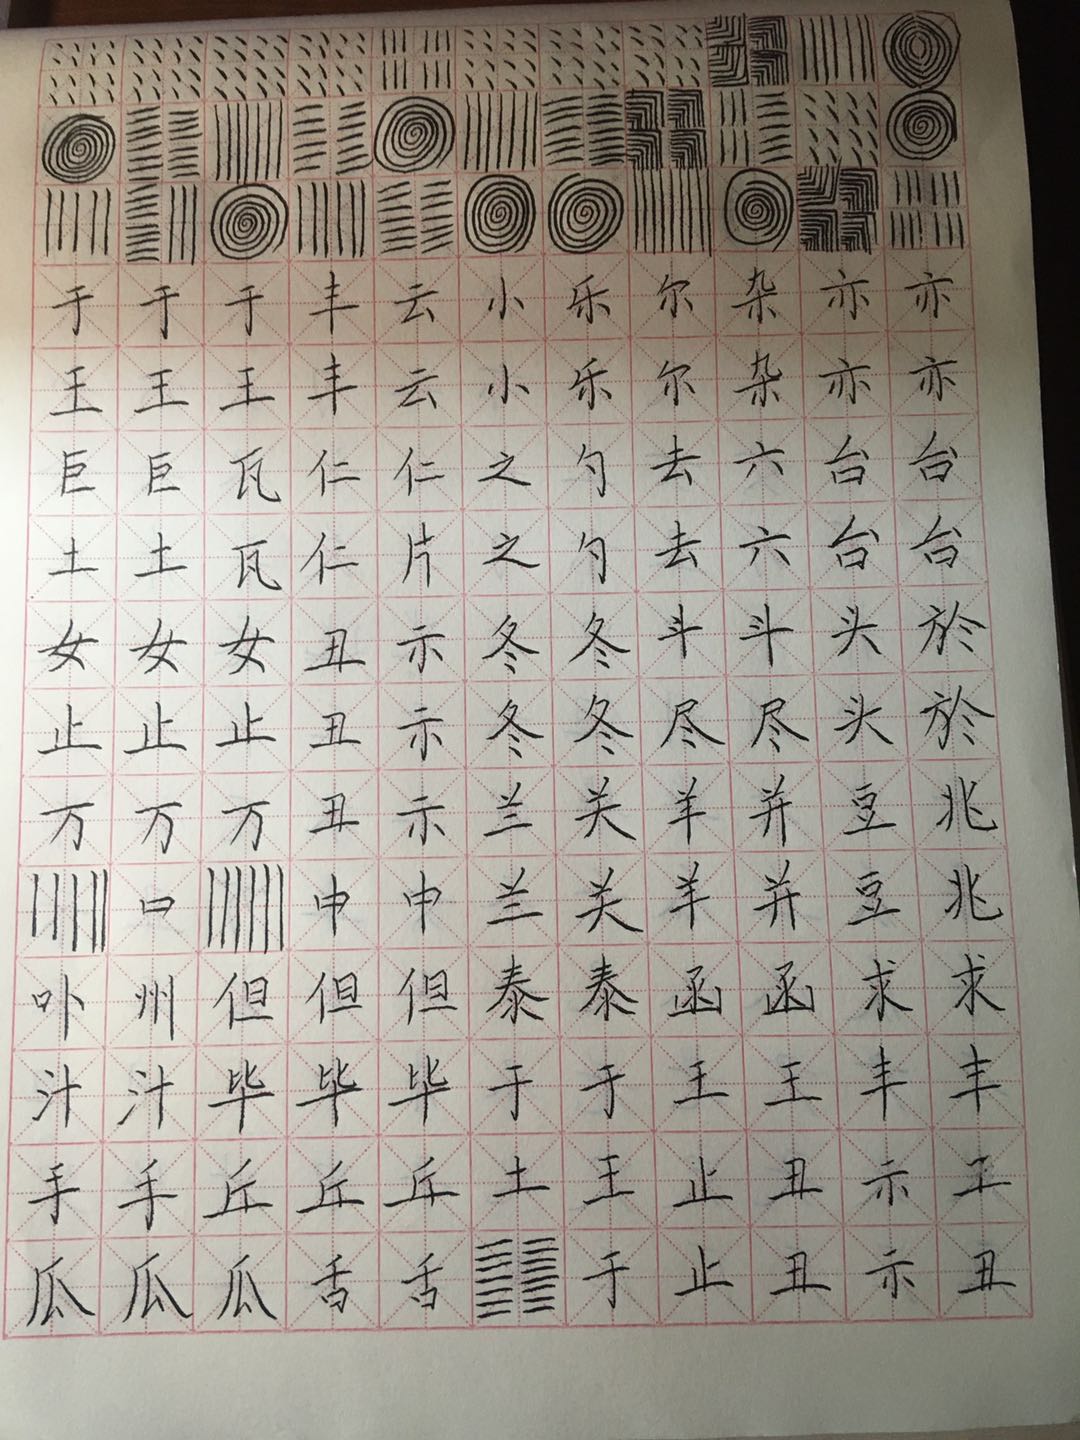 于于于丰云小乐尔杂亦亦
王王王丰云小乐尔杂亦亦
巨巨瓦仁仁之勺去六台台
土土瓦仁片之勺去六台台
女女女丑示冬冬斗斗头於
止止止丑示冬冬尽尽头於
万万万丑示兰关羊并豆兆
口申申兰关羊并豆兆
吥州但但但泰泰函函求求
汁汁毕毕毕于于王王丰丰
手手丘丘丘土王止丑示工
瓜瓜瓜舌舌于止丑示丑